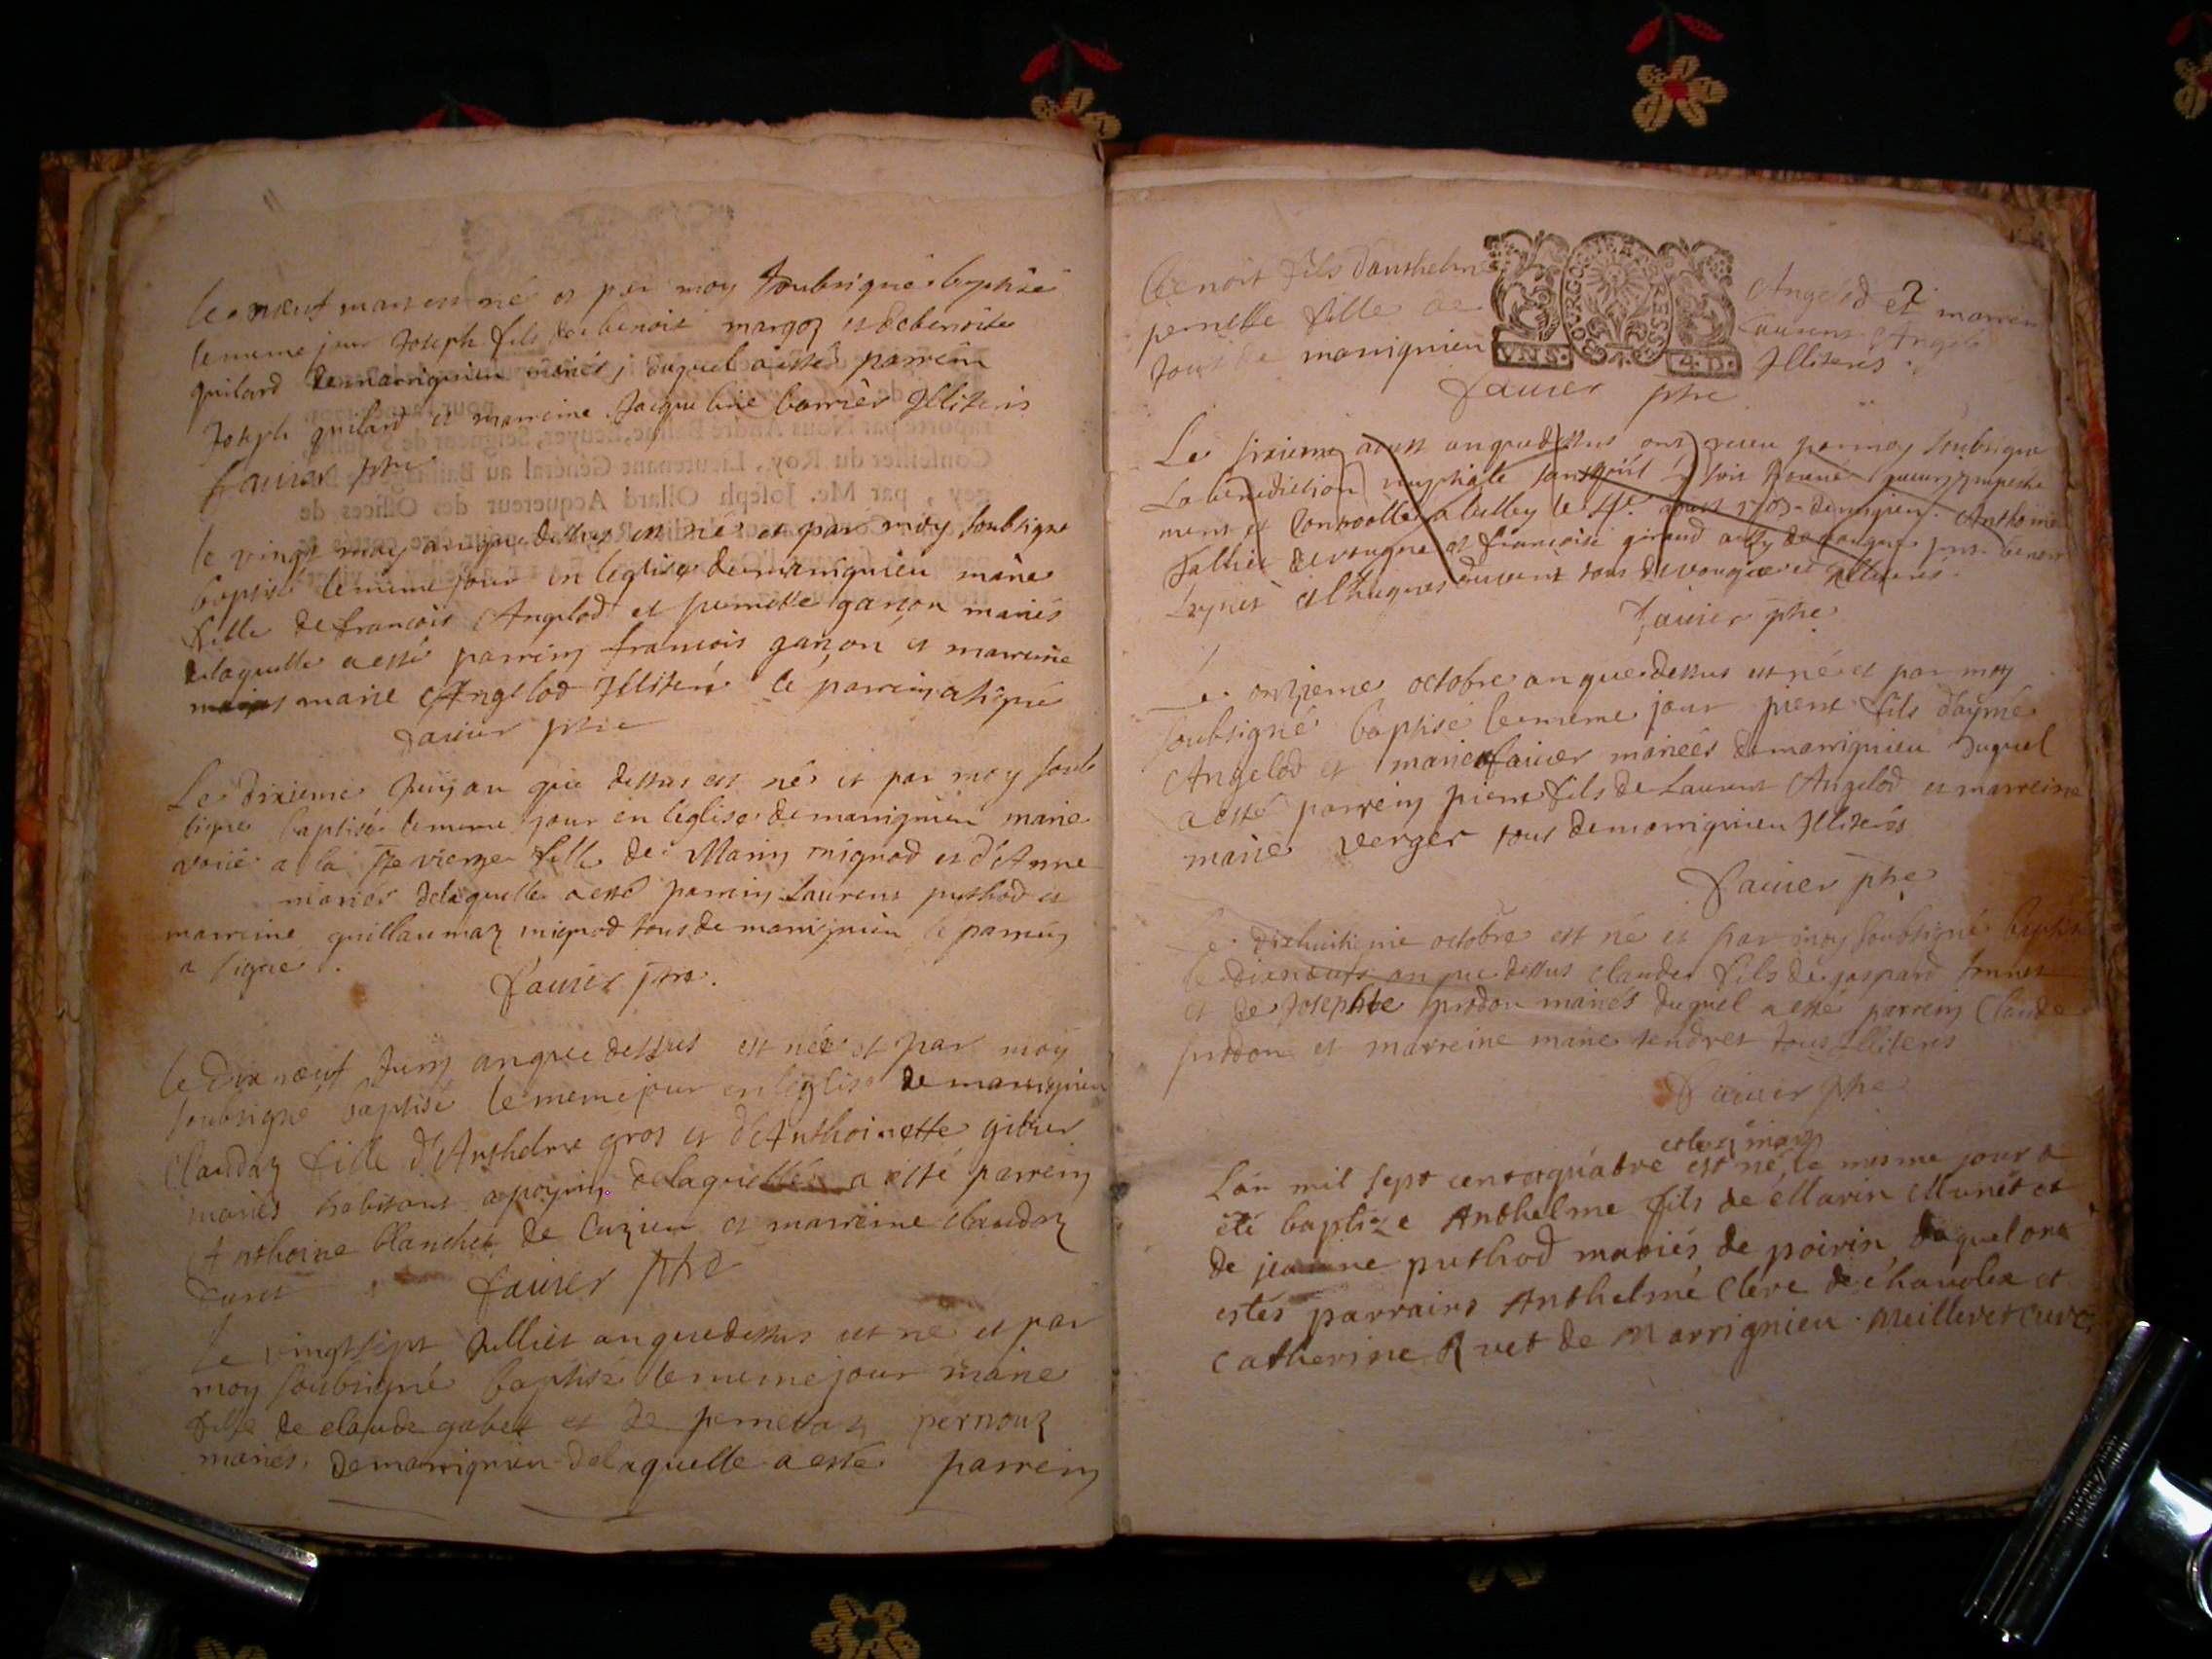 le noeuf mars est né et par moy soubsigné baptisé
le meme jour Joseph fils de benoit margoz et de benoite
guilard de marrignieu mariés duquel a esté parrein
Joseph guilard et marreine Jacqueline barrier Illiterés
fauier ptre
le vingt may an que dessus est né et par moy soubsigné
baptisé le meme jour en leglise de marrignieu marie
fille de francois Angelod et pernette garson mariés
de laquelle a esté parrein francois garson et marreine
marie Angelod Illiteré le parrein a signé
fauier ptre
Le dixieme Juin an que dessus est né et par moy soub
signé baptisé le meme jour en léglise de marrignieu marie
voüé a la Ste vierge fille de Marin mignod et d'Anne
mariés de laquelle a esté parrein Laurent puthod et
marreine guillaumaz mignod tous de marrignieu le parrein
a signé.
fauier ptre.
le dix noeuf Juin an que dessus est née et par moy
soubsigné baptisé le meme jour en léglise de marrignieu
Claudaz fille d'Anthelme gros et d'Anthoinette gibier
mariés habitant a poyrin de laquelle a esté parrein
Anthoine blanchet de Cuzieu et marreine claudaz
furet
fauier ptre
le vingt sept Julliet an que dessus est né et par
moy soubsigné baptisé le meme jour marie
fille de claude gabet et de pernetaz pernouz
mariés de marrignieu de laquelle a esté parrein
benoit fils d'anthelme Angelod et marreine
pernette fille de Laurent Angelod
tous de marrignieu Illiterés.
VNS. BOURGOG ET BRESSE 4.D.
fauier ptre
Le sixieme aoust an que dessus ont receu par moy soubsigné
La benediction nuptiale sans quil se soit trouvé aucun empeche
ment et Controollé a belley le 4e. aoust 1703. Anthoine
Jallier de vongne et francoise giraud
et hugues tous de vongne Illiterés.
fauier ptre
Le onzieme octobre an que dessus est né et par moy
soubsigné baptisé le meme jour pierre fils d'aymé
Angelod et marie fauier mariés de marrignieu duquel
a esté parrein pierre fils de Laurent Angelod et marreine
marie verger tous de marrignieu Illiterés
fauier ptre
Le dixhuitieme octobre est né et par moy soubsigné baptisé
le dixnoeuf an que dessus claude fils de gaspard
et de Josephte prodon mariés duquel a esté parrein Claude
prodon et marreine marie tendret tous Illiterés
fauier ptre
Lan mil sept cent et quatre est né, le mesme jour a
été baptize Anthelme fils de Marin Munét et
de jeanne puthod mariés de poirin duquel ont
estés parrains Anthelme Clere de chavolex et
Catherine Rvet de Marrignieu. Meilleret curé.